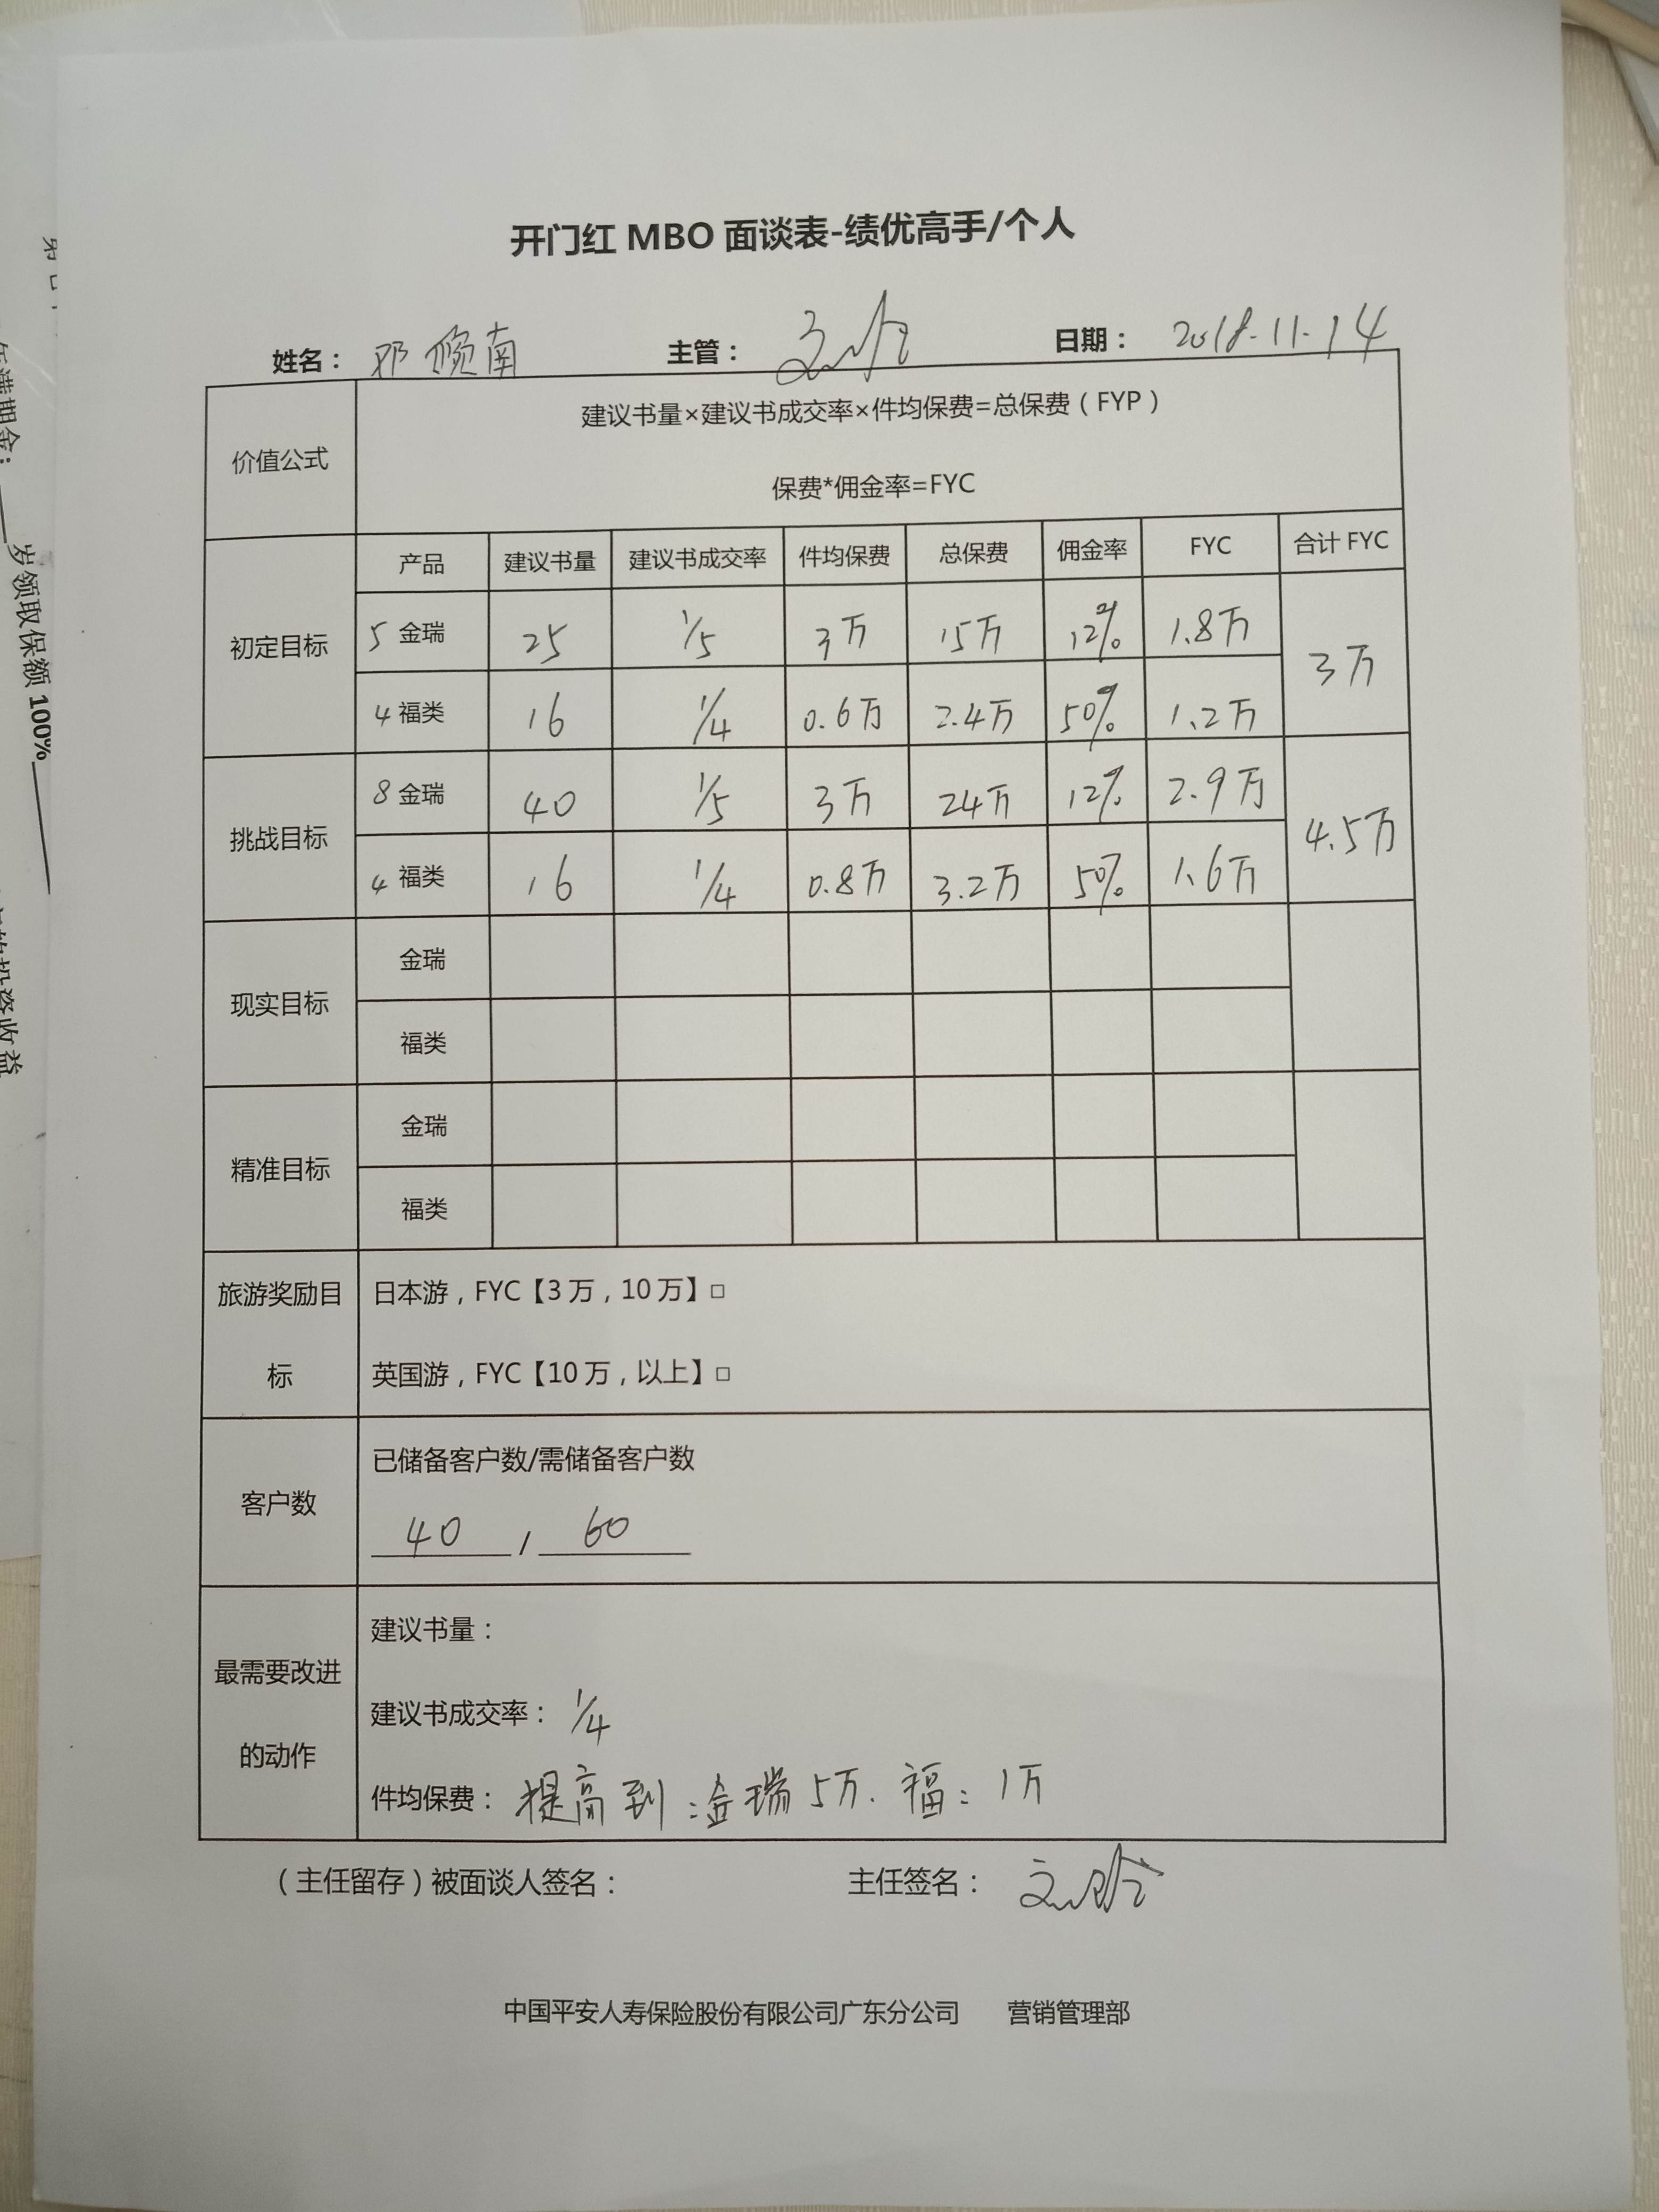 开门红 MBO 面谈表-绩优高手/个人
姓名： 邓 南 主管： 日期： 2018.11.14
价值公式
建议书量×建议书成交率×件均保费=总保费（FYP）
保费*佣金率=FYC
产品 建议书量 建议书成交率 件均保费 总保费 佣金率 FYC 合计 FYC
初定目标
5 金瑞 25 1/5 3万 15万 12% 1.8万
3万
4 福类 16 1/4 0.6万 2.4万 50% 1.2万
挑战目标
8 金瑞 40 1/5 3万 24万 12% 2.9万
4.5万
4 福类 16 1/4 0.8万 3.2万 50% 1.6万
现实目标
金瑞
福类
精准目标
金瑞
福类
旅游奖励目
标
日本游，FYC【3 万，10 万】□
英国游，FYC【10 万，以上】□
客户数
已储备客户数/需储备客户数
40 / 60
最需要改进
的动作
建议书量：
建议书成交率： 1/4
件均保费： 提高到：金瑞5万. 福：1万
（主任留存）被面谈人签名： 主任签名：
中国平安人寿保险股份有限公司广东分公司 营销管理部
年满期金：
岁领取保额 100%
投资收益